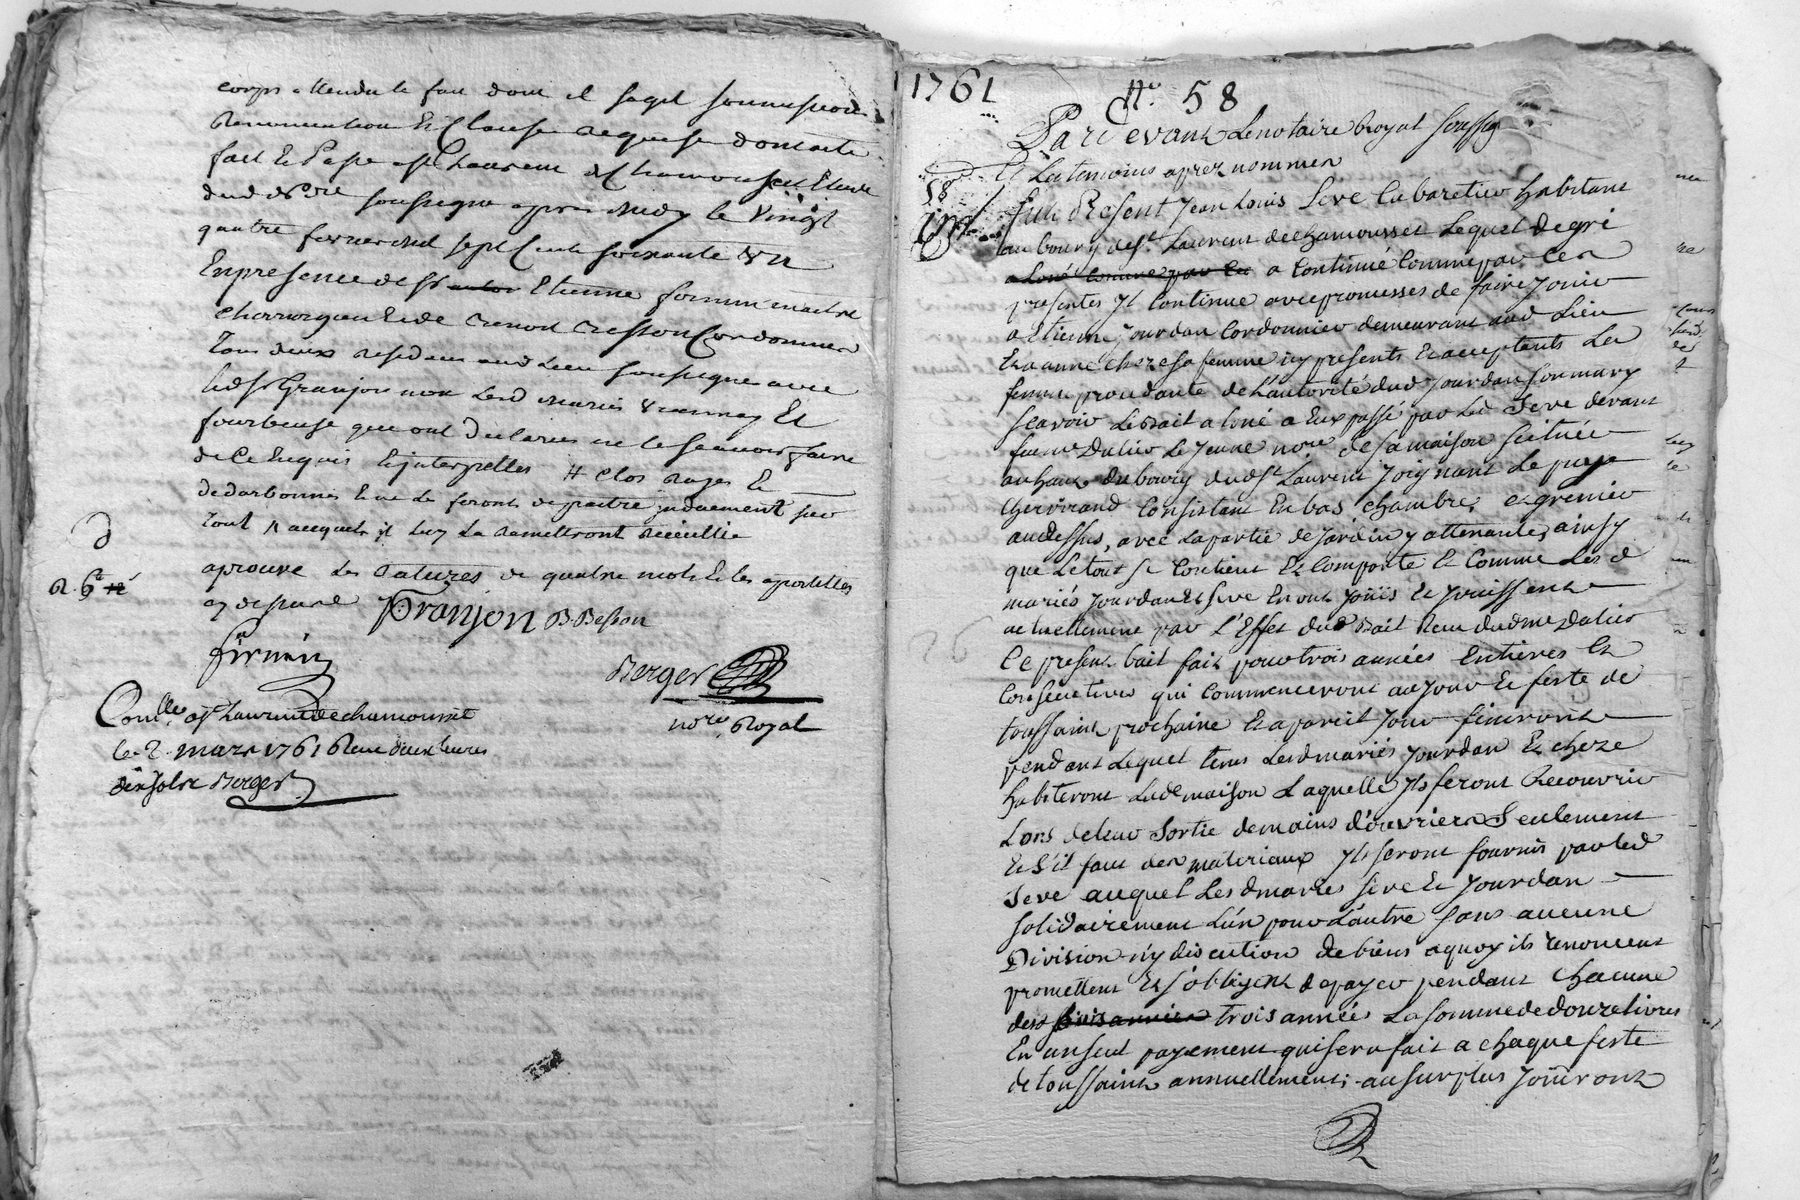 corps attendu le fait dont il sagit soumission
Renonciation & Clause requise dont acte
fait & Passé a St Laurent de Chamousset Etude
dud no.re soussigné apres midy le Vingt
quatre fevrier mil sept Cent soixante & un
En presence de Sr Etienne firmin maitre
Chirurgien & de Benoit Besson Cordonnier
Tous deux residens aud Lieu soussignés avec
led Sr Granjon non Lesd mariés &
qui ont Declarés ne le scavoir faire
de Ce Enquis & interpellés # Clos
tout
aprouvé les Ratures de quatre mots & les apostilles
cy dessus
Granjon B. Besson
firmin
Berger
no.re Royal
Con.lle a St Laurent de chamousset
le 2 mars 1761 Reçu
dix sols Berger
1761 N.o 58
Pardevant Le notaire Royal soussig
& Les temoins aprez nommez
58
fut Present Jean Louis Seve Cabaretier habitant
au bourg de St Laurent de chamousset Lequel de gré
a Continué Comme par Ces
presentes Il Continue avec promesses de faire Jouir
a Etienne Jourdan Cordonnier demeurant aud Lieu
& a anne cheze sa femme icy presents & acceptants La
femme procedante de L'autorité dud Jourdan son mary
scavoir Le Bail a loué a Eux passé par Led Seve devant
feu me Dalier Le Jeune no.re de sa maison scituée
au haut du bourg dud St Laurent Joignant Le
Consistant En bas chambre, & grenier
au dessus, avec La partie de Jardin y attenante, ainsy
que Le tout se Contient & Comporte & Comme Les d
mariés Jourdan & Seve En ont Joüis & Jouissent
actuellement par L'Effet dud Bail Reçu dud me Dalier
Ce present bail fait pour trois années Entieres &
Consecutives qui Commenceront au Jour & feste de
toussaint prochaine & a pareil Jour finiront
pendant Lequel tems Lesd mariés Jourdan & cheze
habiteront Lad maison Laquelle Ils feront Recouvrir
Lors de leur sortie de mains d'ouvriers Seulement
& S'il faut des materiaux Ils seront fournis par led
Seve auquel Lesd mariés Seve & Jourdan
solidairement L'un pour L'autre sans aucune
Division ny discution de biens a quoy ils renoncent
promettent & s'obligent de payer pendant chacune
desd trois années La somme de douze livres
En un seul payement qui sera fait a chaque feste
de toussaint annuellement; au surplus Joüiront